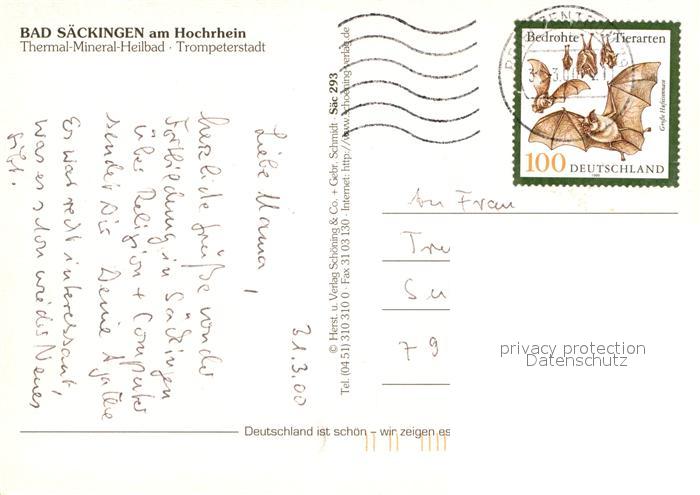 BAD SÄCKINGEN am Hochrhein
Thermal-Mineral-Heilbad · Trompeterstadt
21.3.00
Liebe Mama,
herzliche Grüße von der
Fortbildung in Säckingen
über Religion + Computer
sendet Dir Deine Agathe
Es war recht interessant,
was es schon wieder Neues
gibt.
© Herst. u. Verlag Schöning & Co. + Gebr. Schmidt Säc 293
Tel. (04 51) 310 310 0 · Fax 31 03 130 · Internet: http://www.schoening-verlag.de
Bedrohte Tierarten
Große Hufeisennase
100 DEUTSCHLAND
1999
An Frau
Tre
Su
79
privacy protection
Datenschutz
Deutschland ist schön – wir zeigen es